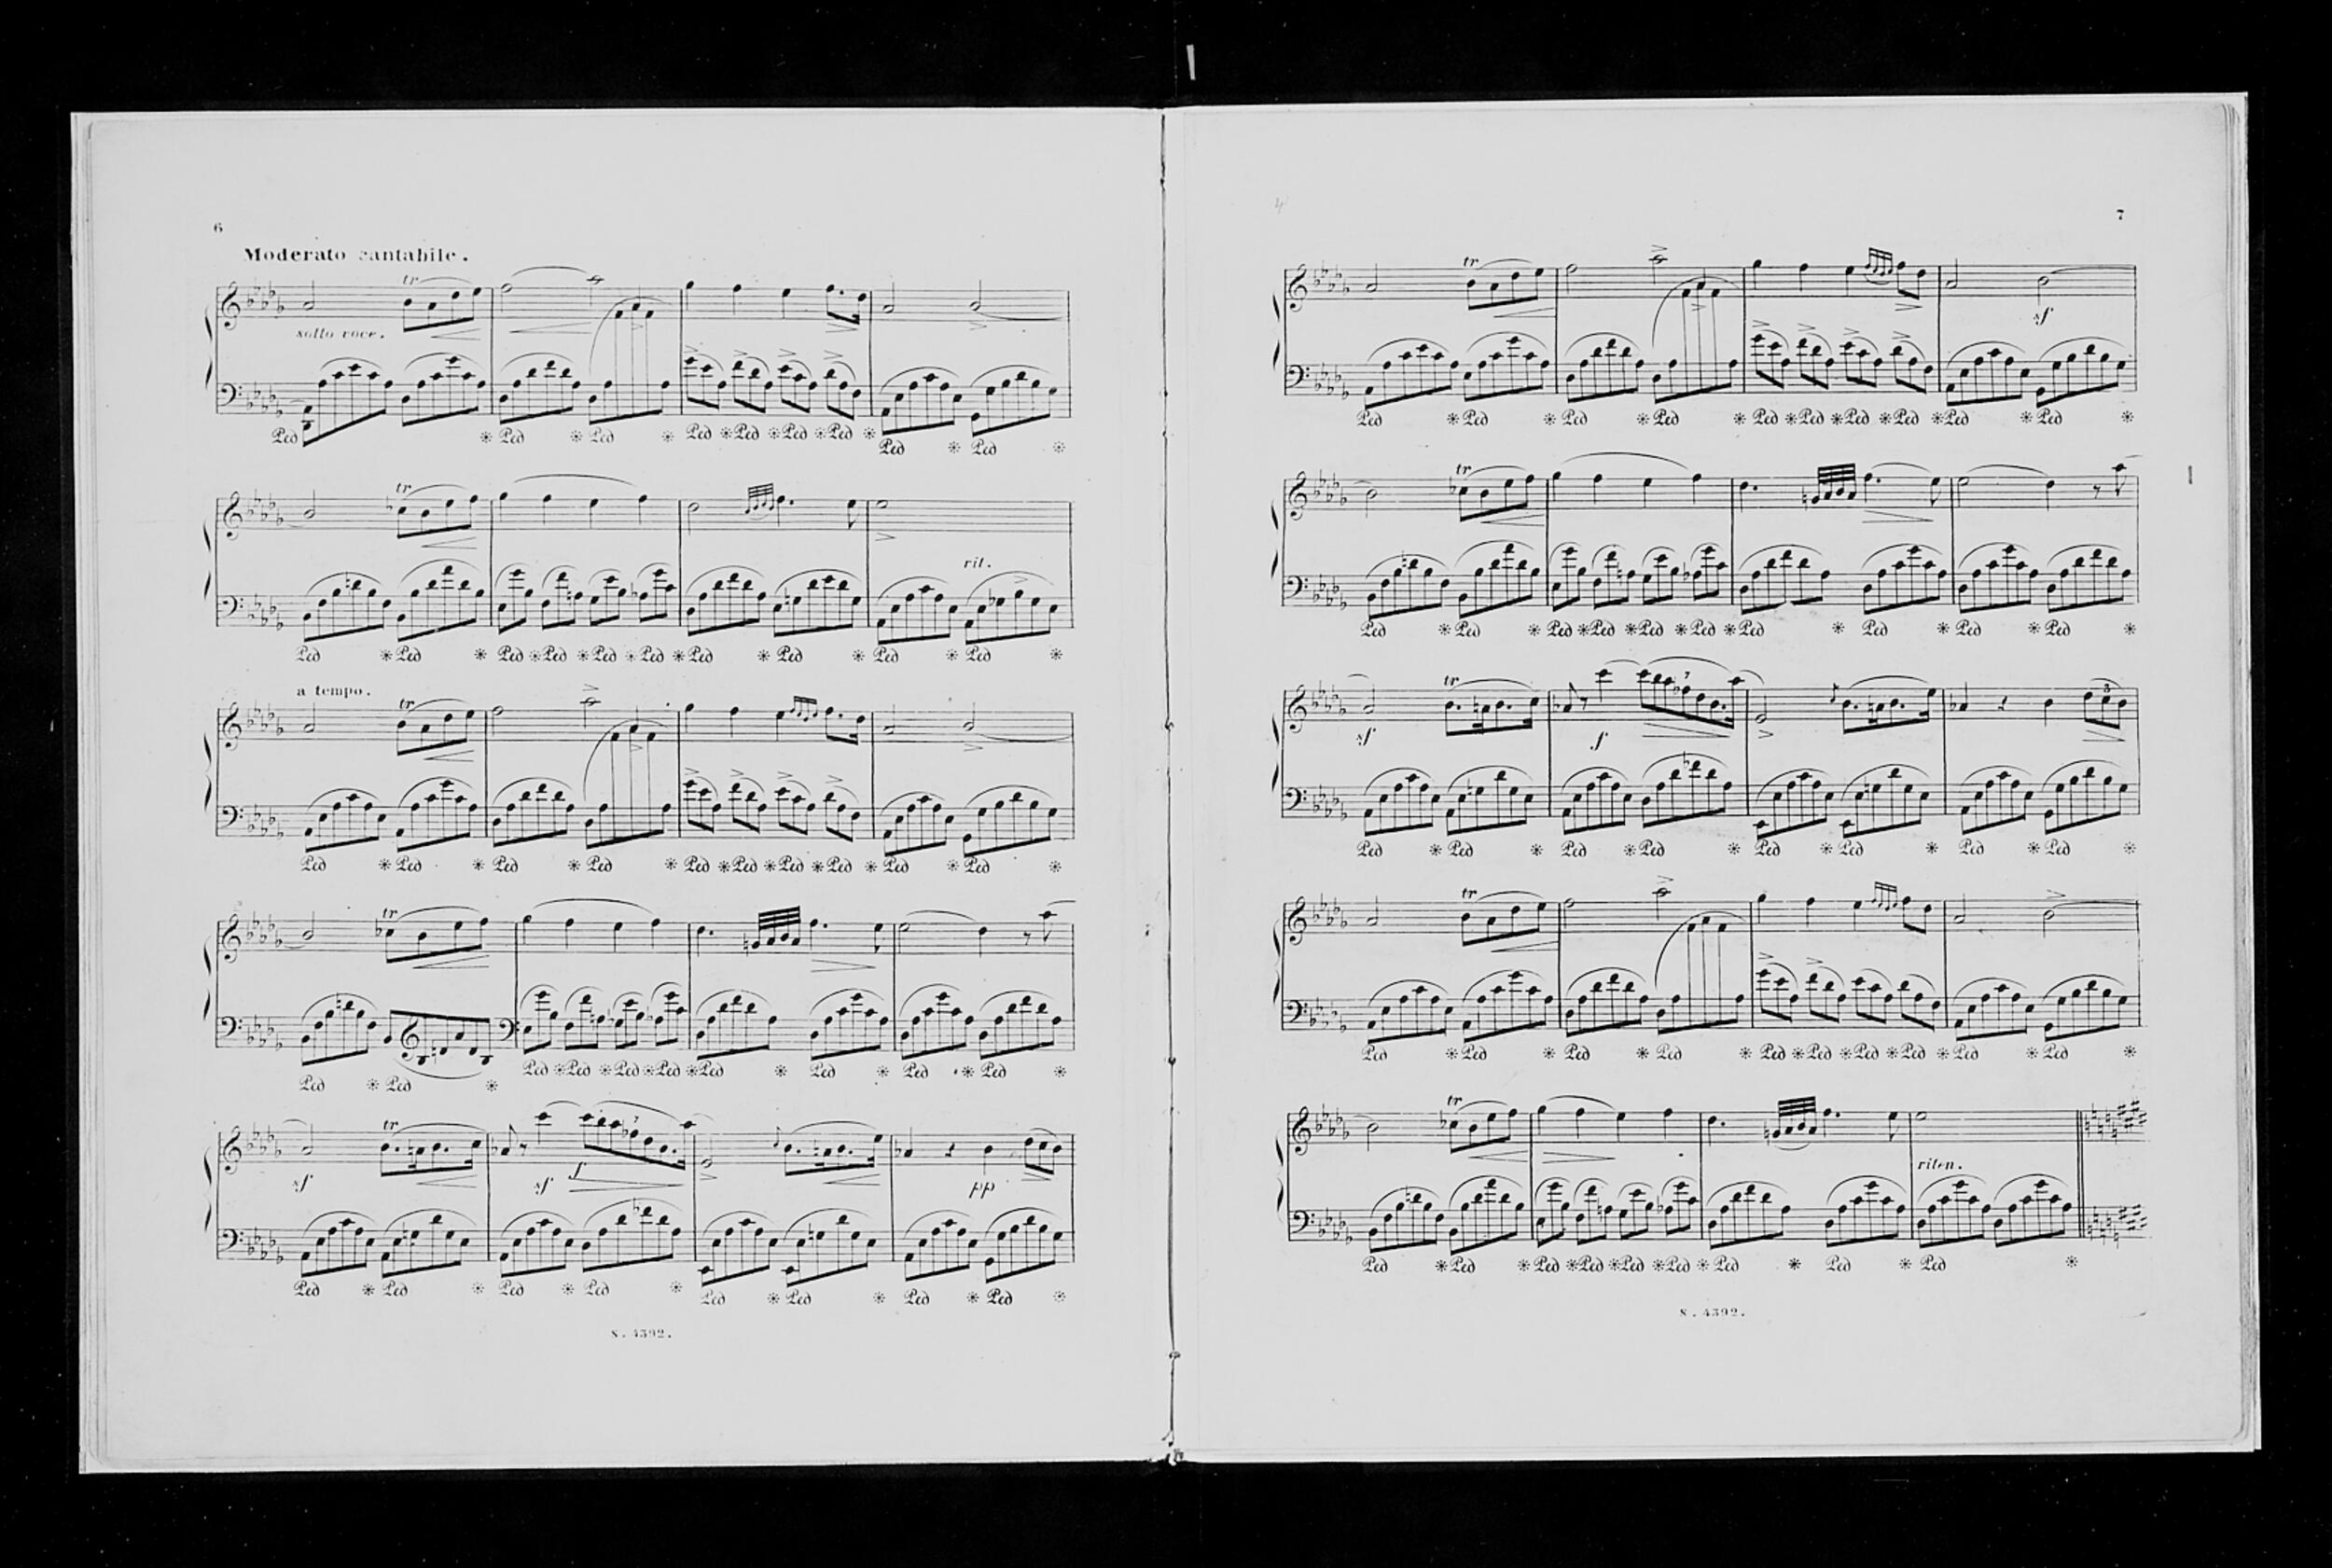 6
Moderato cantabile.
tr
sotto voce.
Ped * Ped * Ped * Ped * Ped * Ped * Ped * Ped * Ped *
tr
rit.
Ped * Ped * Ped * Ped * Ped * Ped * Ped * Ped * Ped * Ped *
a tempo.
tr
Ped * Ped * Ped * Ped * Ped * Ped * Ped * Ped * Ped * Ped *
tr
Ped * Ped * Ped * Ped * Ped * Ped * Ped * Ped * Ped * Ped *
tr 7
sf sf f pp
Ped * Ped * Ped * Ped * Ped * Ped * Ped * Ped *
S. 4392.
4
7
tr
sf
Ped * Ped * Ped * Ped * Ped * Ped * Ped * Ped * Ped * Ped *
tr
Ped * Ped * Ped * Ped * Ped * Ped * Ped * Ped * Ped * Ped *
tr 7 3
sf f
Ped * Ped * Ped * Ped * Ped * Ped * Ped * Ped *
tr
Ped * Ped * Ped * Ped * Ped * Ped * Ped * Ped * Ped * Ped *
tr
riten.
Ped * Ped * Ped * Ped * Ped * Ped * Ped * Ped * Ped *
S. 4392.